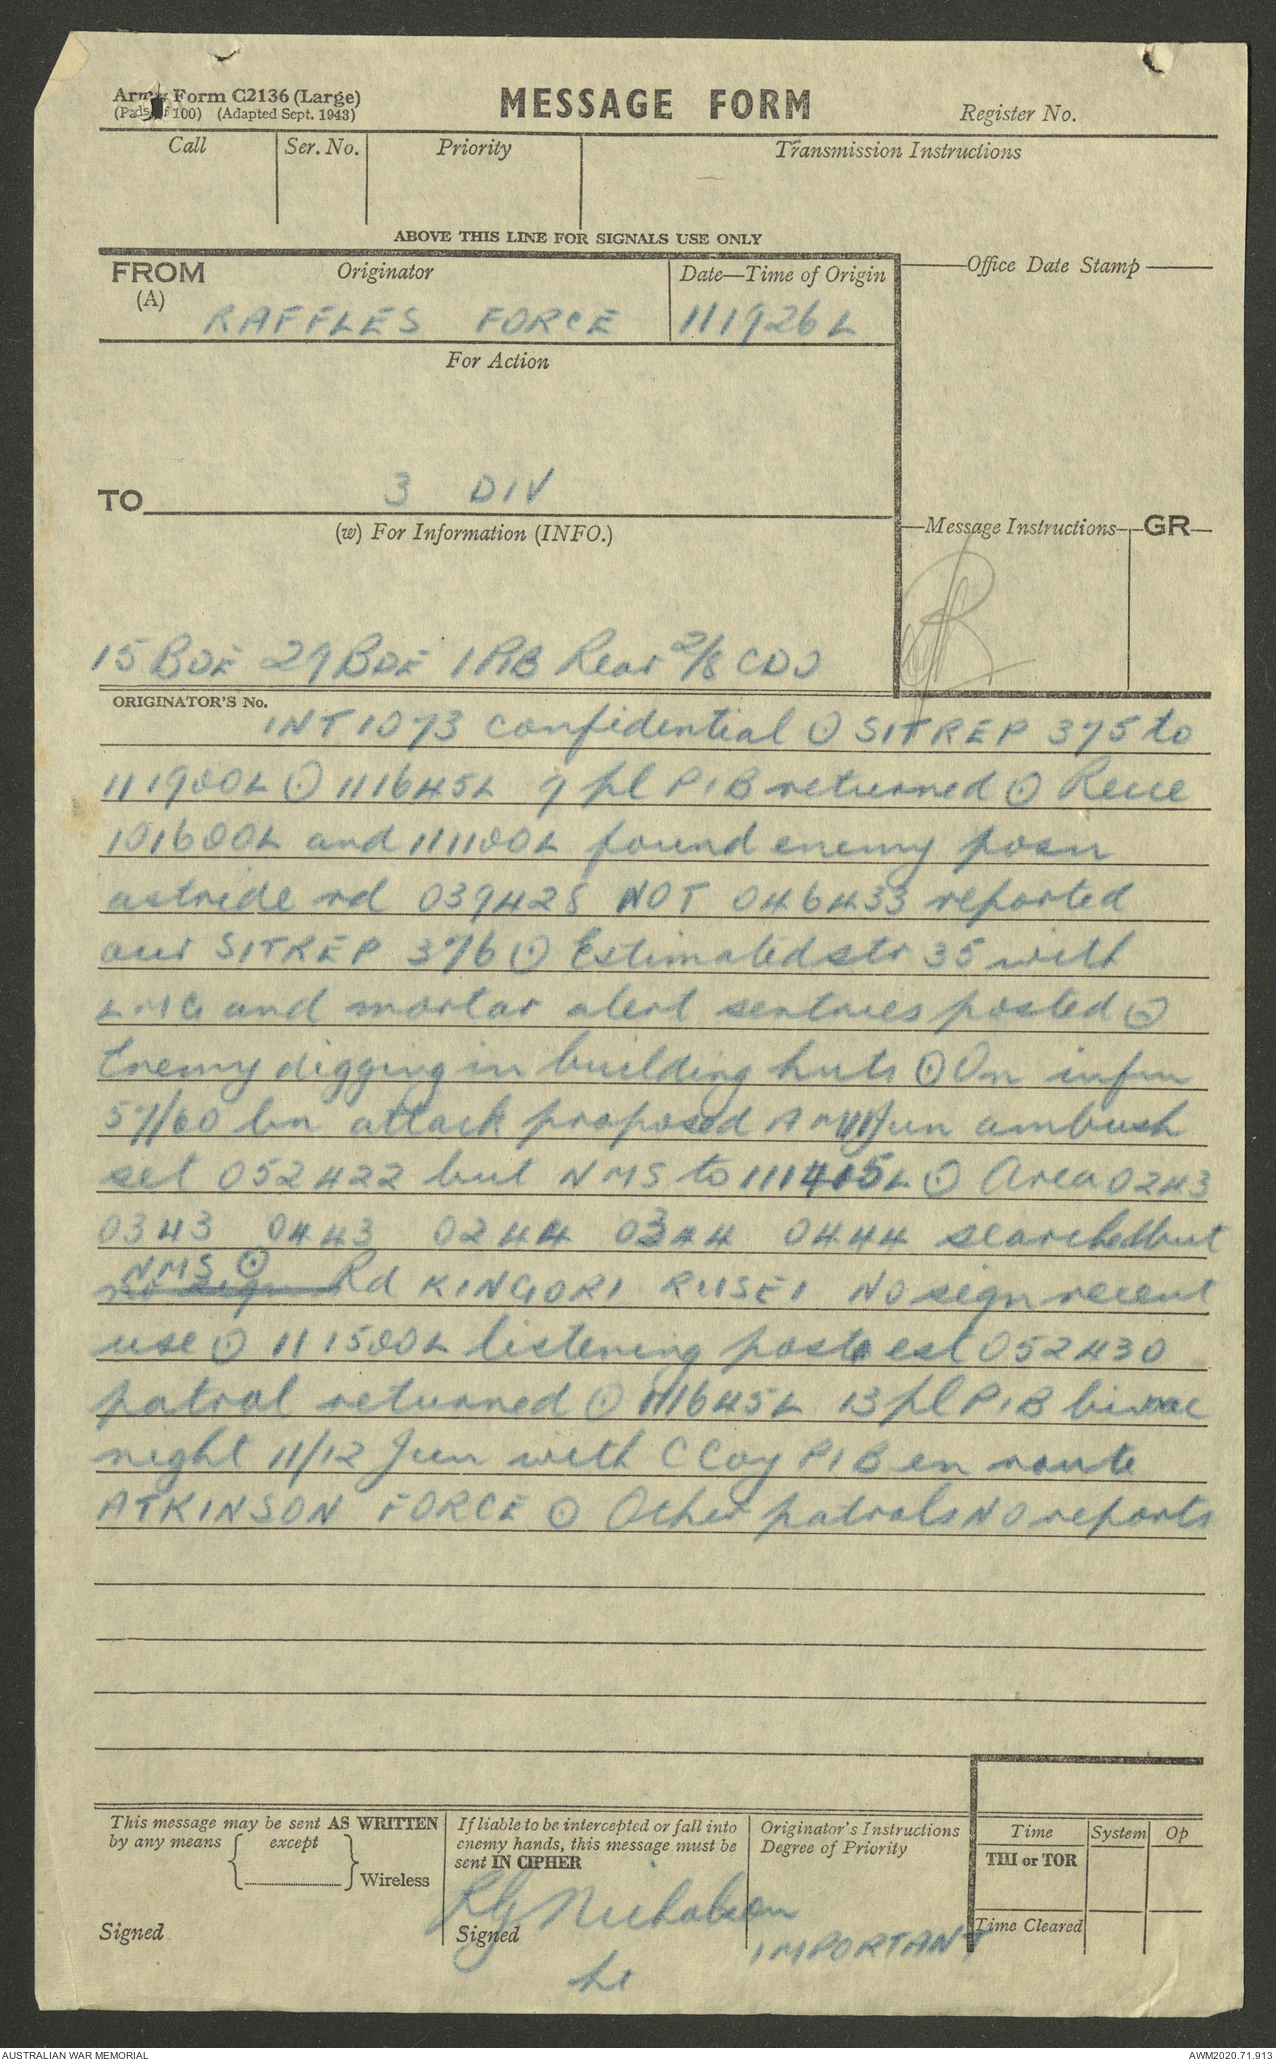 Army Form C2136 (Large)
(Pads of 100) (Adapted Sept. 1943)
MESSAGE FORM
Register No.
Call Ser. No. Priority Transmission Instructions
ABOVE THIS LINE FOR SIGNALS USE ONLY
FROM Originator Date—Time of Origin Office Date Stamp
(A)
RAFFLES FORCE 111926L
For Action
TO 3 DIV
(w) For Information (INFO.) Message Instructions GR
15 BDE 29 BDE 1 PIB Rear 2/8 CDO
ORIGINATOR'S No.
INT 1073 confidential ⊙ SITREP 375 to
111900L ⊙ 111645L 9 pl PIB returned ⊙ Recce
101600L and 111100L found enemy posn
astride rd 039428 NOT 046433 reported
our SITREP 376 ⊙ Estimated str 35 with
LMG and mortar alert sentries posted ⊙
Enemy digging in building huts ⊙ On infm
57/60 bn attack proposed AM 11 Jun ambush
set 052422 but NMS to 111405L ⊙ Area 0243
0343 0443 0244 0344 0444 searched but
NMS ⊙
no sign Rd KINGORI RUSEI NO sign recent
use ⊙ 111500L listening post est 052430
patrol returned ⊙ 111645L 13 pl PIB bivouac
night 11/12 Jun with C Coy PIB en route
ATKINSON FORCE ⊙ Other patrols NO reports
This message may be sent AS WRITTEN
by any means except
Wireless
Signed
If liable to be intercepted or fall into
enemy hands, this message must be
sent IN CIPHER
Nicholson
Signed
Lt
Originator's Instructions
Degree of Priority
IMPORTANT
Time System Op
THI or TOR
Time Cleared
AUSTRALIAN WAR MEMORIAL
AWM2020.71.913